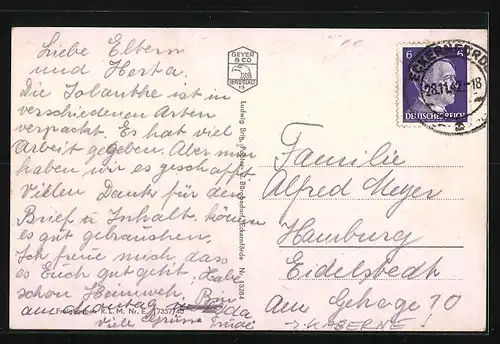 Liebe Eltern
und Herta.
Die Jolanthe ist in
verschiedenen Arten
verpackt. Es hat viel
Arbeit gegeben. Aber nun
haben wir es geschafft.
Vielen Dank für den
Brief u Inhalt, können
es gut gebrauchen.
Ich freue mich, dass
es Euch gut geht. Habe
schon Heimweh. Bin
am Sonntag da
Viele Grüsse Trude
GEYER
& CO
BRESLAU
13
Ludwig Börnsen, Eckernförde Nr. 13284
Freigegeben R.L.M. Nr. E. 7357/40
6 6
DEUTSCHES REICH
ECKERNFÖRDE
28.11.42.-18
a
Familie
Alfred Meyer
Hamburg
Eidelstedt
Am Gehege 10
KASERNE!